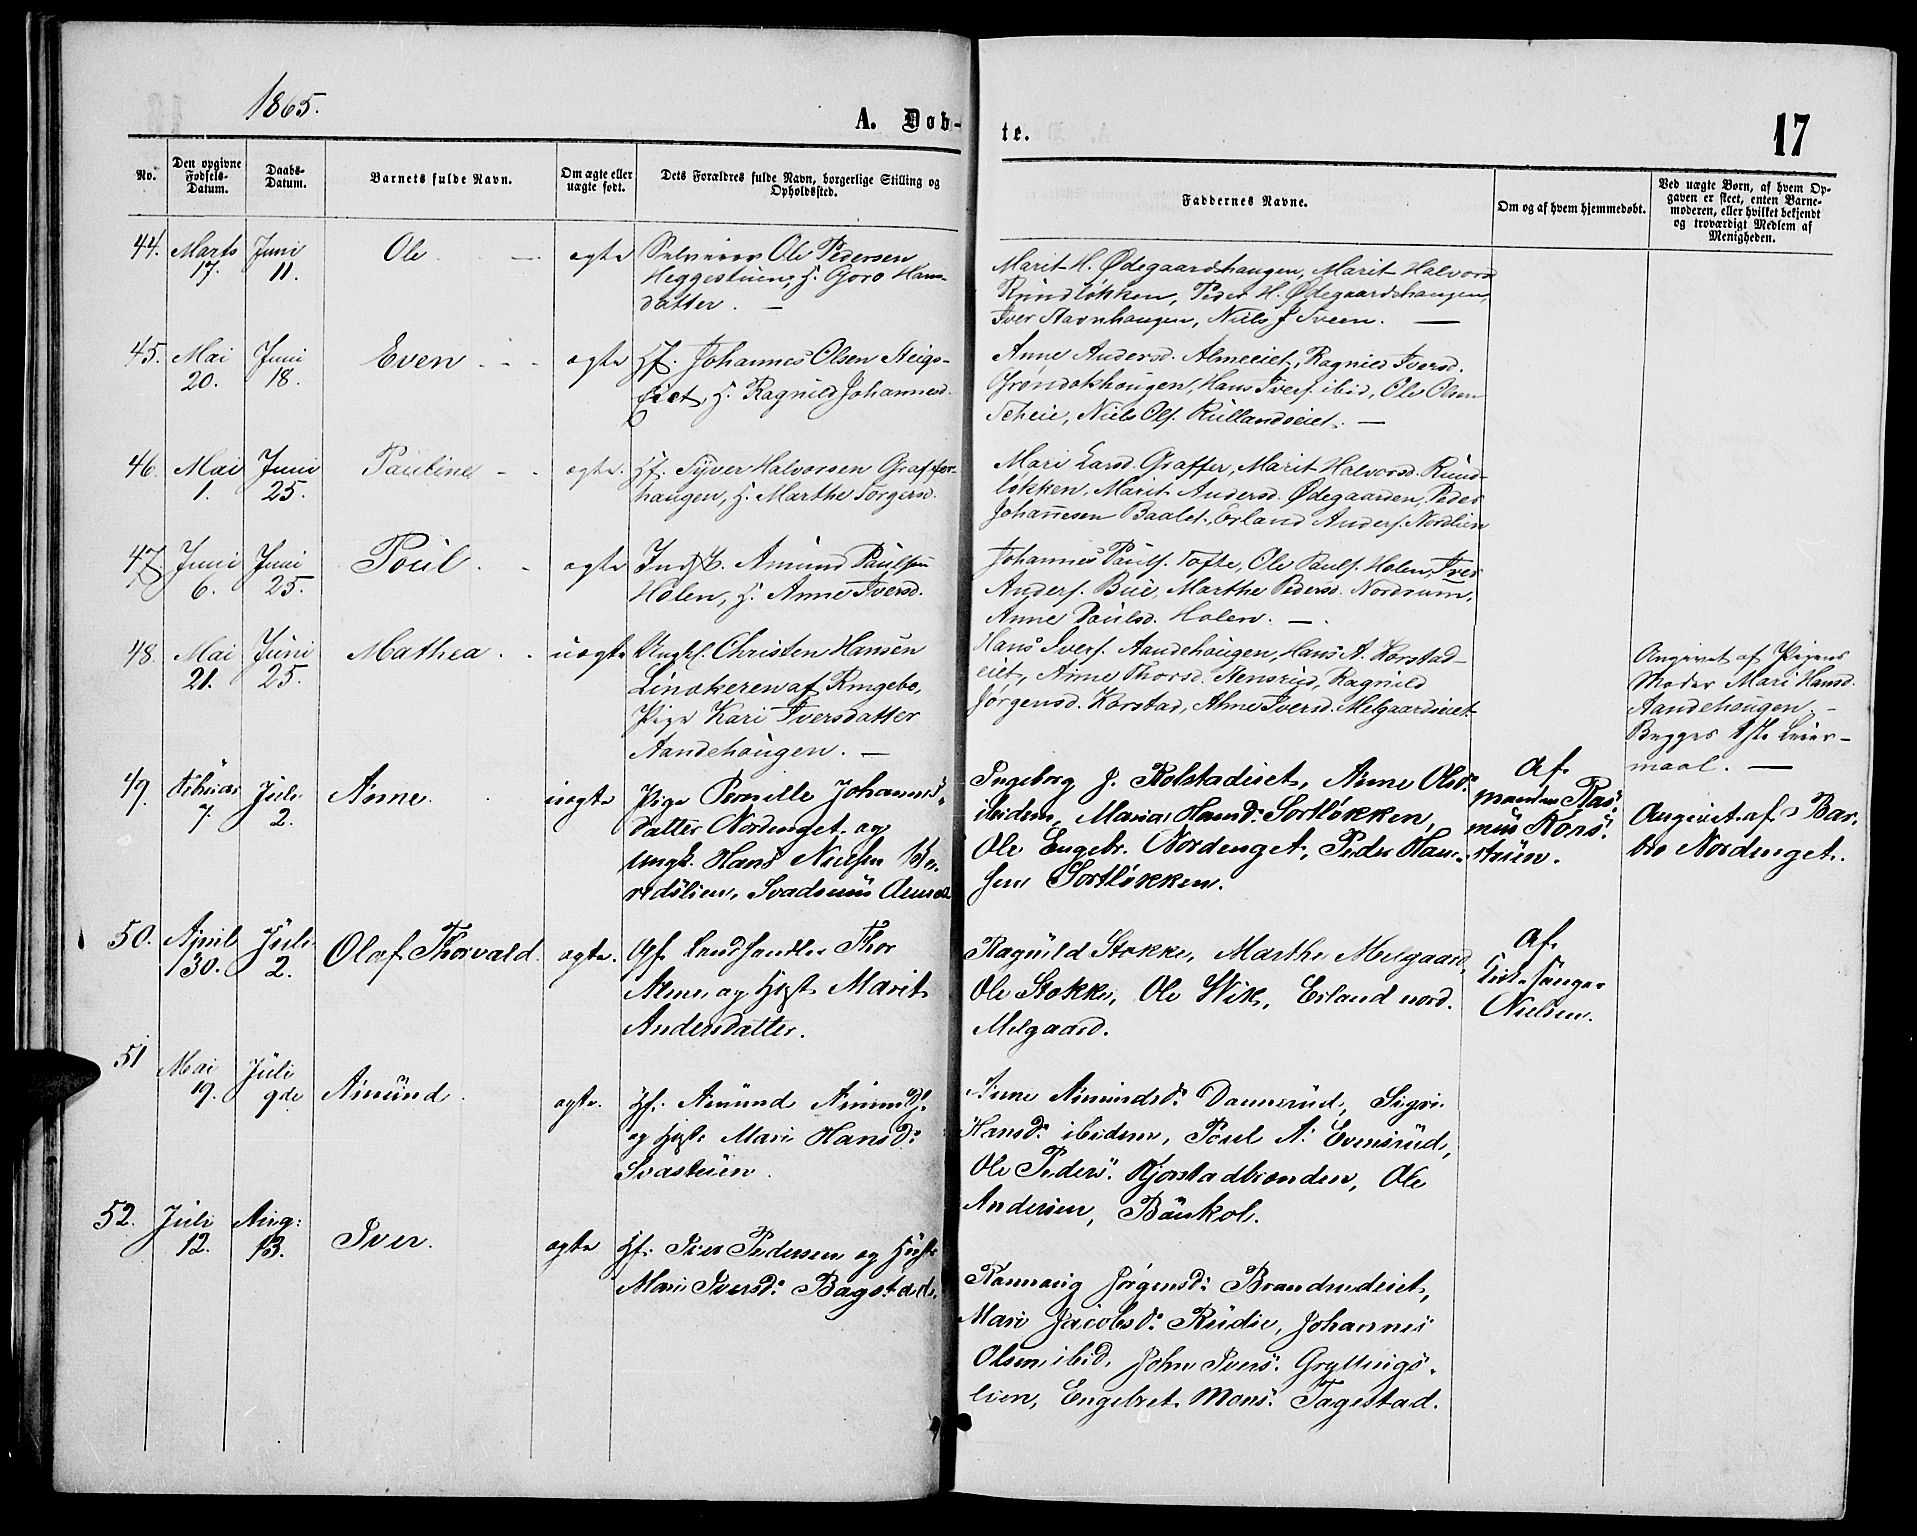 1865.
A. Døb-
te.
17
No.
Den opgivne
Fødsels-
Datum.
Daabs-
Datum.
Barnets fulde Navn.
Om ægte eller
uægte født.
Dets Forældres fulde Navn, borgerlige Stilling og
Opholdssted.
Faddernes Navne.
Om og af hvem hjemmedøbt.
Ved uægte Børn, af hvem Op-
gaven er skeet, enten Barne-
moderen, eller hvilket bekjendt
og troværdigt Medlem af
Menigheden.
44. Marts Juni Ole. — ægte Selveier Ole Pedersen
17. 11. Heggestuen, H. Goro Hans-
datter. —
Marit H. Ødegaardshaugen, Marit Halvorsd
Rundløkken, Peder H. Ødegaardshaugen,
Iver Stavnhaugen, Niels J Sveen. —
45. Mai Juni Even - - ægte Hf. Johannes Olsen Steigs-
20. 18. Eiet, H. Ragnild Johannesd.
Anne Andersd. Almeeiet, Ragnild Iversd.
Grøndokhaugen, Hans Ivers. ibid, Ole Olsen
Scheie, Niels Ols. Rullandseiet. —
46. Mai Juni Pauline - - ægte. Hf. Syver Halvorsen Graffer-
1. 25. haugen, H. Marthe Torgersd.
Mari Larsd. Graffer, Marit Halvorsd. Rund-
løkken, Marit Andersd. Ødegaarden, Peder
Johannesen Baalet, Erland Anders. Nordlien
47 Juni Juni Poul. - ægte Inds. Amund Paulsen
6. 25. Holen, H. Anne Iversd.
Johannes Pauls. Tofte, Ole Pauls. Holen, Iver
Anders. Bue, Marthe Pedersd. Nordrum,
Anne Paulsd. Holen. —.
48. Mai Juni Mathea. . uægte Ungkl. Christen Hansen
21. 25. Lindkeren af Ringebo,
Pige Kari Iversdatter
Aandehaugen. —
Hans Ivers. Aandehaugen, Hans A. Korstad-
eiet, Anne Thorsd. Stensrud, Ragnild
Jørgensd. Korstad, Anne Iversd. Melgaardseiet
Angivet af Pigens
Moder Mari Hansd.
Aandehaugen. -
Begges 1ste Leier-
maal. —
49. Februar Juli Anne. uægte Pige Pernille Johannes-
7. 2. datter Nordenget. og
Ungk. Hans Nielsen
Ingeborg J. Kolstadeiet, Anne Olsd.
ibidem, Maria Hansd: Sortløkken,
Ole Engebr. Nordenget, Peder Han-
sen Sortløkken.
Af
Ras-
mus
Angivet af Bar-
bro Nordenget.
50. April Juli Olaf Thorvald. ægte. Gf. Landhandler Thor
30. 2. Alme og Hust Marit
Andersdatter.
Ragnild Stokke, Marthe Melgaard,
Ole Stokke, Ole Wik, Erland nord.
Melgaard.
Af
Kirkesanger
Nielsen.
51 Mai Juli Amund. ægte. Hf. Amund Amunds.
19. 9de og Hust. Mari Hansd:
Svastuen.
Anne Amundsd: Dannerud, Sigri
Hansd: ibidem, Poul A. Evensrud,
Ole Peders: Kjorstadbronden, Ole
Andersen, Baukol.
52. Juli Aug: Iver. ægte Hf. Iver Pedersen og Hust
12. 13. Mari Iversd: Bagstad.
Rannaug Jørgensd: Brandrudeiet,
Mari Jacobsd: Rudie, Johannes
Olsen ibid, John Ivers: Gryttings-
lien, Engebret Mons: Tagestad.